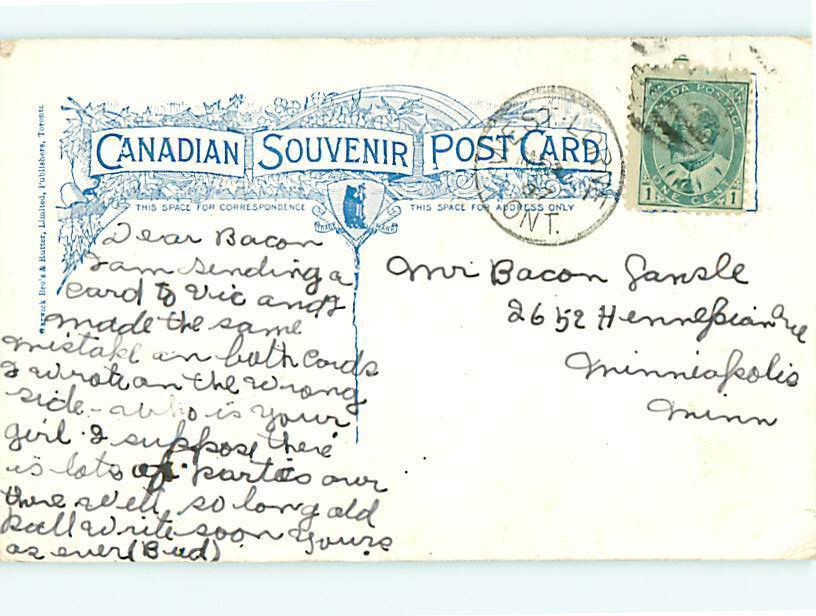 CANADIAN SOUVENIR POST CARD
THIS SPACE FOR CORRESPONDENCE
THIS SPACE FOR ADDRESS ONLY
TRADE MARK
Warwick Bro's & Rutter, Limited, Publishers, Toronto.
CANADA POSTAGE
ONE CENT
1 1
ONT.
Dear Bacon
I am sending a
card to Vic and I
made the same
mistake on both cards
I wrote on the wrong
side - who is your
girl. I suppose there
is lots of parties over
there well so long old
pall write soon yours
as ever (Bud)
Mr Bacon
2652 Hennepian Ave
Minneapolis
Minn